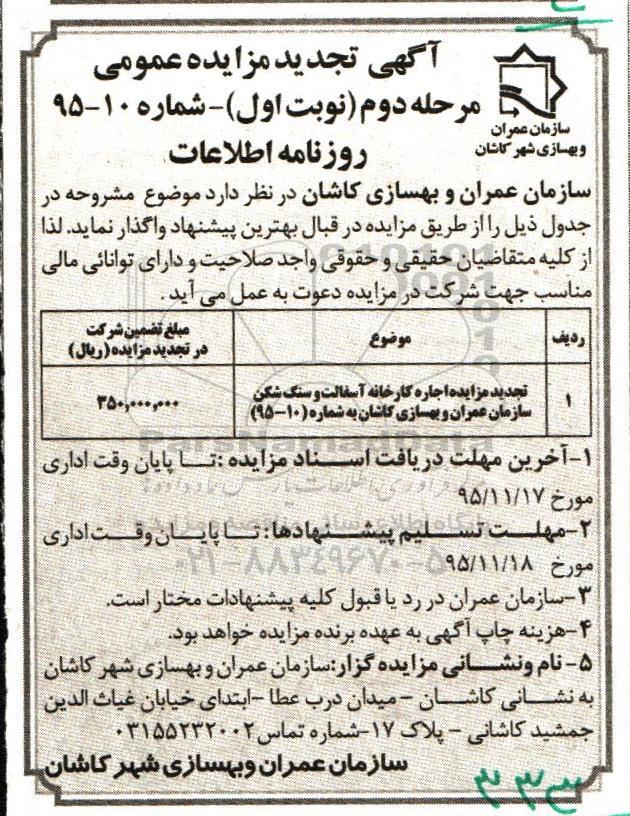 آگهی تجدید مزایده عمومی
مرحله دوم (نوبت اول) - شماره ۱۰-۹۵
روزنامه اطلاعات
سازمان عمران
و بهسازی شهر کاشان
سازمان عمران و بهسازی کاشان در نظر دارد موضوع مشروحه در
جدول ذیل را از طریق مزایده در قبال بهترین پیشنهاد واگذار نماید. لذا
از کلیه متقاضیان حقیقی و حقوقی واجد صلاحیت و دارای توانائی مالی
مناسب جهت شرکت در مزایده دعوت به عمل می آید.
ردیف
موضوع
مبلغ تضمین شرکت
در تجدید مزایده (ریال)
۱
تجدید مزایده اجاره کارخانه آسفالت و سنگ شکن
سازمان عمران و بهسازی کاشان به شماره (۱۰-۹۵)
۳۵۰,۰۰۰,۰۰۰
۱-آخرین مهلت دریافت اسناد مزایده : تا پایان وقت اداری
مورخ ۹۵/۱۱/۱۷
۲-مهلت تسلیم پیشنهادها: تا پایان وقت اداری
مورخ ۹۵/۱۱/۱۸
۳-سازمان عمران در رد یا قبول کلیه پیشنهادات مختار است.
۴-هزینه چاپ آگهی به عهده برنده مزایده خواهد بود.
۵- نام ونشانی مزایده گزار: سازمان عمران و بهسازی شهر کاشان
به نشانی کاشان - میدان درب عطا - ابتدای خیابان غیاث الدین
جمشید کاشانی - پلاک ۱۷-شماره تماس ۰۳۱۵۵۲۳۲۰۰۲
سازمان عمران وبهسازی شهر کاشان
ParsNamadData
۰۲۱-۸۸۳۴۹۶۷۰-۵